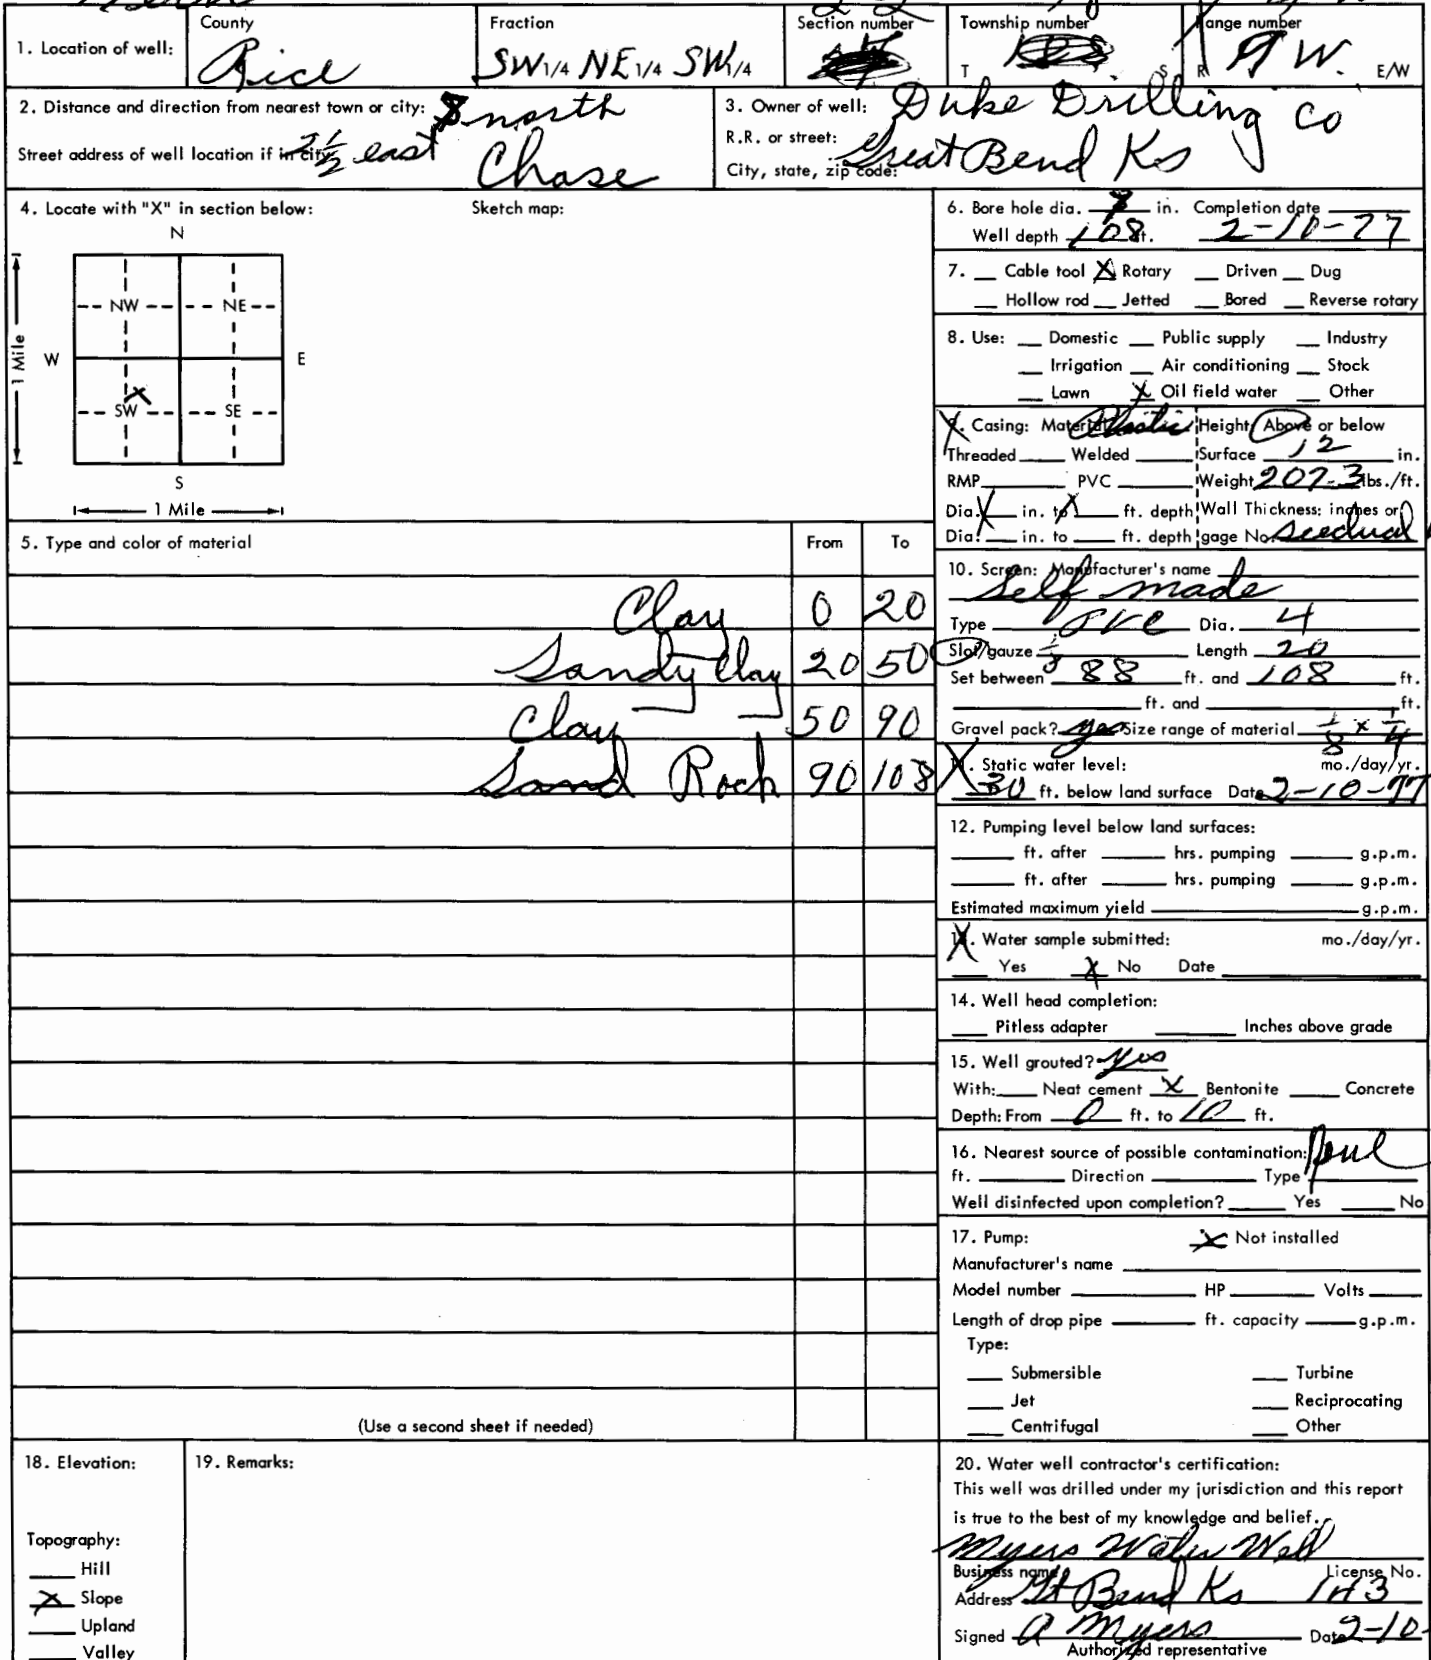 County Fraction Section number Township number Range number
1. Location of well: Rice SW 1/4 NE 1/4 SW 1/4 T S R 9 W. E/W
2. Distance and direction from nearest town or city: north
Street address of well location if in city: 2 1/2 east Chase
3. Owner of well: Duke Drilling Co
R.R. or street:
City, state, zip code: Great Bend Ks
4. Locate with "X" in section below: Sketch map:
N
NW NE
W E
1 Mile
X
SW SE
S
1 Mile
5. Type and color of material From To
Clay 0 20
Sandy Clay 20 50
Clay 50 90
Sand Rock 90 108
(Use a second sheet if needed)
6. Bore hole dia. in. Completion date
Well depth 108 ft. 2-10-77
7. Cable tool X Rotary Driven Dug
Hollow rod Jetted Bored Reverse rotary
8. Use: Domestic Public supply Industry
Irrigation Air conditioning Stock
Lawn X Oil field water Other
9. Casing: Material Plastic Height: Above or below
Threaded Welded Surface 12 in.
RMP PVC Weight 207-3 lbs./ft.
Dia. in. to ft. depth Wall Thickness: inches or
Dia. in. to ft. depth gage No.
10. Screen: Manufacturer's name
Self made
Type PVC Dia. 4
Slot/gauze 1/8 Length 20
Set between 88 ft. and 108 ft.
ft. and ft.
Gravel pack? yes Size range of material 1/8 x 1/4
11. Static water level: mo./day/yr.
30 ft. below land surface Date 2-10-77
12. Pumping level below land surfaces:
ft. after hrs. pumping g.p.m.
ft. after hrs. pumping g.p.m.
Estimated maximum yield g.p.m.
13. Water sample submitted: mo./day/yr.
Yes X No Date
14. Well head completion:
Pitless adapter Inches above grade
15. Well grouted? yes
With: Neat cement X Bentonite Concrete
Depth: From 0 ft. to 10 ft.
16. Nearest source of possible contamination:
ft. Direction Type
Well disinfected upon completion? Yes No
17. Pump: X Not installed
Manufacturer's name
Model number HP Volts
Length of drop pipe ft. capacity g.p.m.
Type:
Submersible Turbine
Jet Reciprocating
Centrifugal Other
18. Elevation:
Topography:
Hill
X Slope
Upland
Valley
19. Remarks:
20. Water well contractor's certification:
This well was drilled under my jurisdiction and this report
is true to the best of my knowledge and belief.
Myers Water Well
Business name License No.
Address Gt Bend Ks 143
Signed A Myers Date 2-10-
Authorized representative